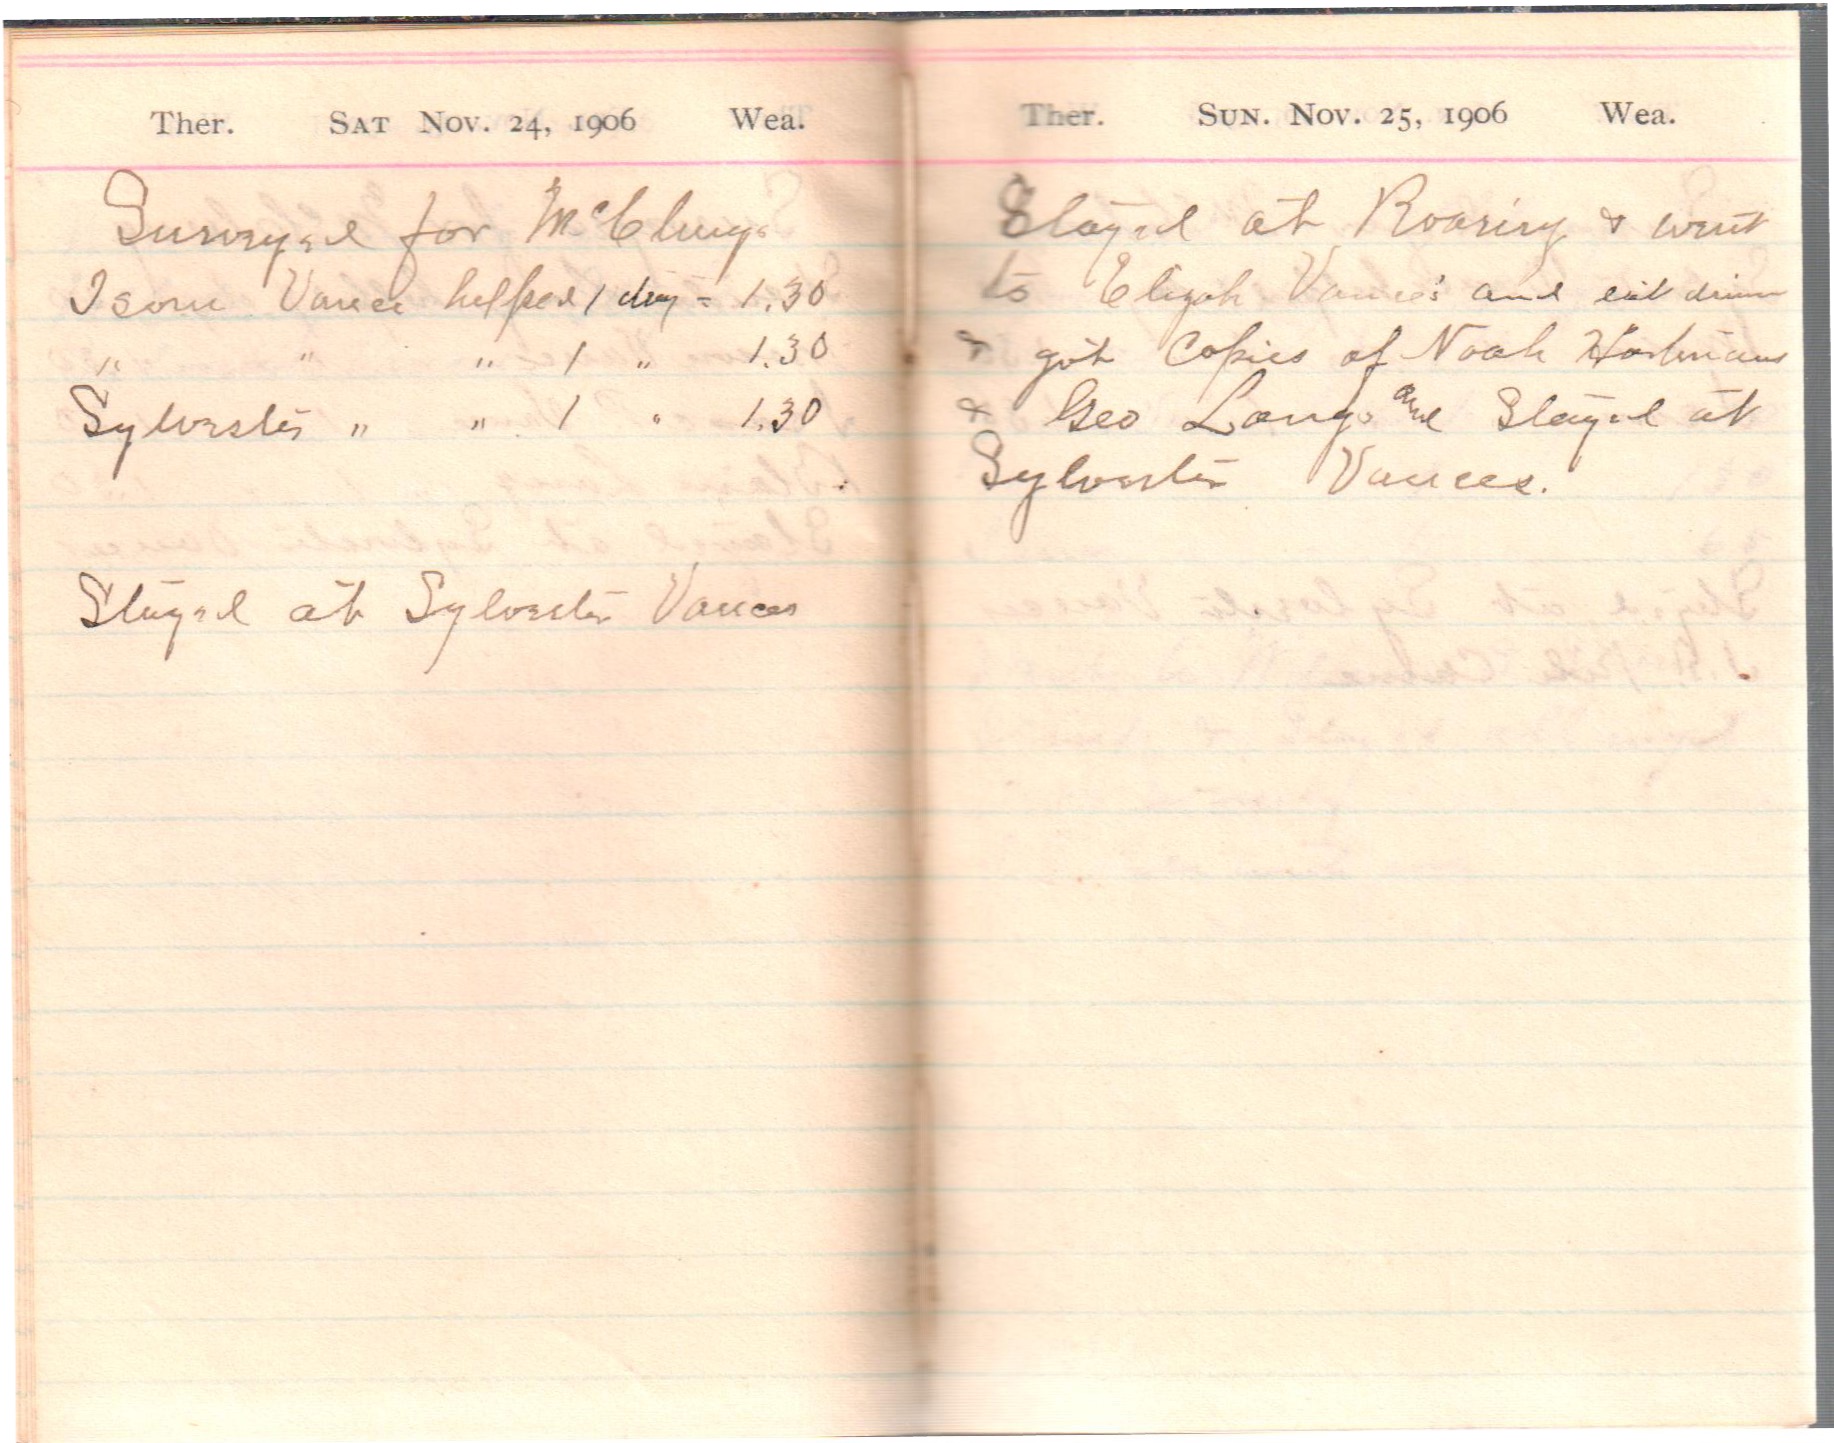 Ther. SAT Nov. 24, 1906 Wea.
Surveyed for McClung.
Isom Vance helped 1 day = 1.30
" " " 1 " 1.30
Sylvester " " 1 " 1.30
Stayed at Sylvester Vances
Ther. SUN. Nov. 25, 1906 Wea.
Stayed at Roaring & went
to Elizah Vance's and eat
& got Copies of Noah
& Geo Long. and Stayed at
Sylvester Vances.